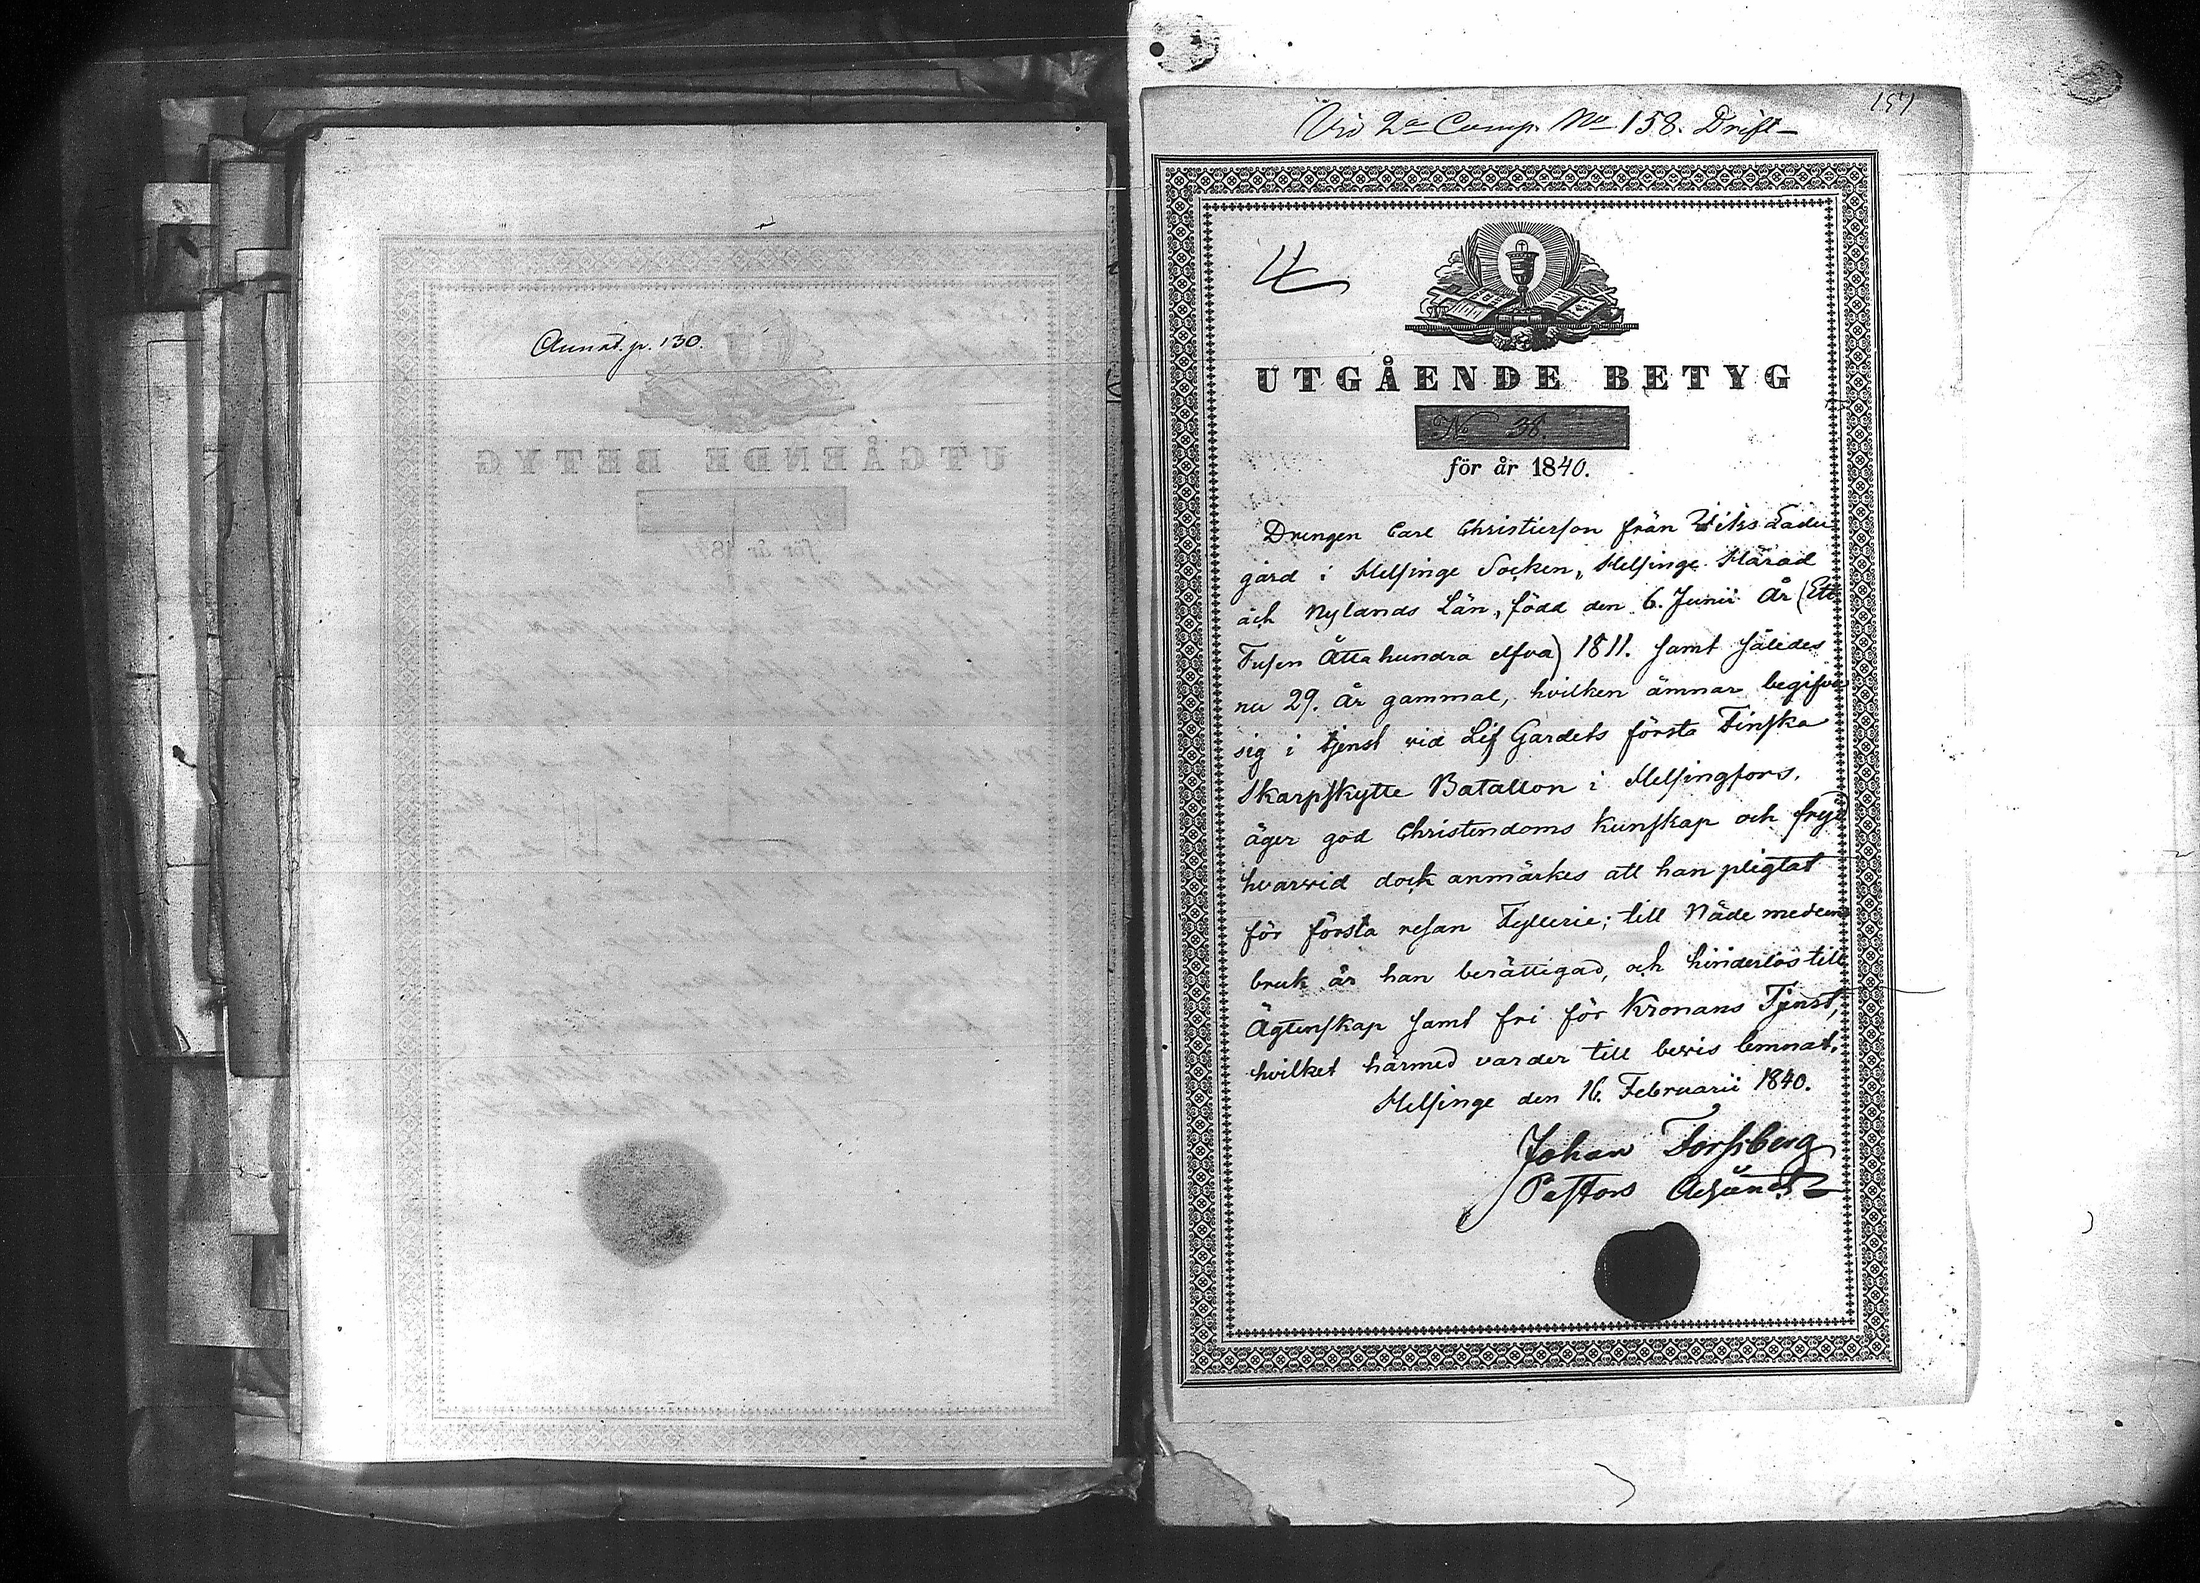 Annot. p. 130.
157
Vid 2a Comp. No 158. Drift
UTGÅENDE BETYG
No 38.
för år 1840.
Drengen Carl Christierson från Wiks Ladu
gård i Helsinge Socken, Helsinge Härad
och Nylands Län, född den 6. Junii År (Ett
Tusen Åttahundra elfva) 1811. samt således
nu 29. År gammal, hvilken ämnar begifva
sig i tjenst vid Lif Gardets första Finska
Skarpskytte Batallon i Helsingfors,
äger god Christendoms kunskap och frejd
hvarvid dock anmärkes att han pligtat
för första resan Fylleri; till Nådemedlens
bruk är han berättigad, och hinderlös till
Ägtenskap samt fri för Kronans Tjenst,
hvilket härmed varder till bevis lemnat.
Helsinge den 16. Februarii 1840.
Johan Forssberg
Pastors Adjunct